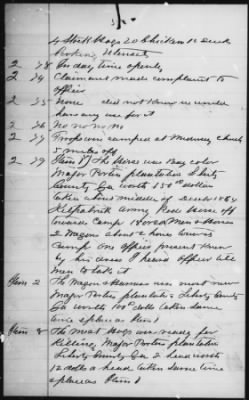 4 Stock Hogs 20 Chickens 12 Duck
Cooking Utensils
2 73 In day time openly
2 74 Claimant made complaint to
officer
2 75 None did not know
any use for it
2 76 No no no no
2 77 Troops were camped at Midway Church
5 miles off
2 79 Item 1 The Horse was Bay color
Major Porter plantation Liberty
County Ga worth 150 dollars
taken about middle of December 1864
Kilpatrick army Rode Horse off
towards Camp
2 Wagons about 2 hours
camp One officer present known
by his dress I heard officer tell
men to take it
Item 2 The Wagon & Harness was most new
Major Porter plantation Liberty County
Ga worth 100 dolls taken same
time & place as Item 1
Item 8 The meat Hogs was ready for
Killing Major Porter plantation
Liberty County Ga 2 head worth
12 dolls a head taken same time
& place as Item 1